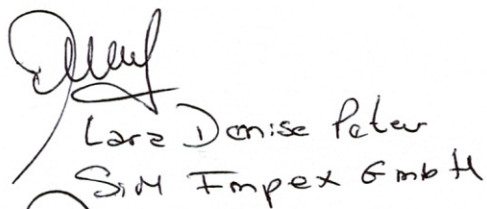 Lara Denise Peter
SiM Impex GmbH